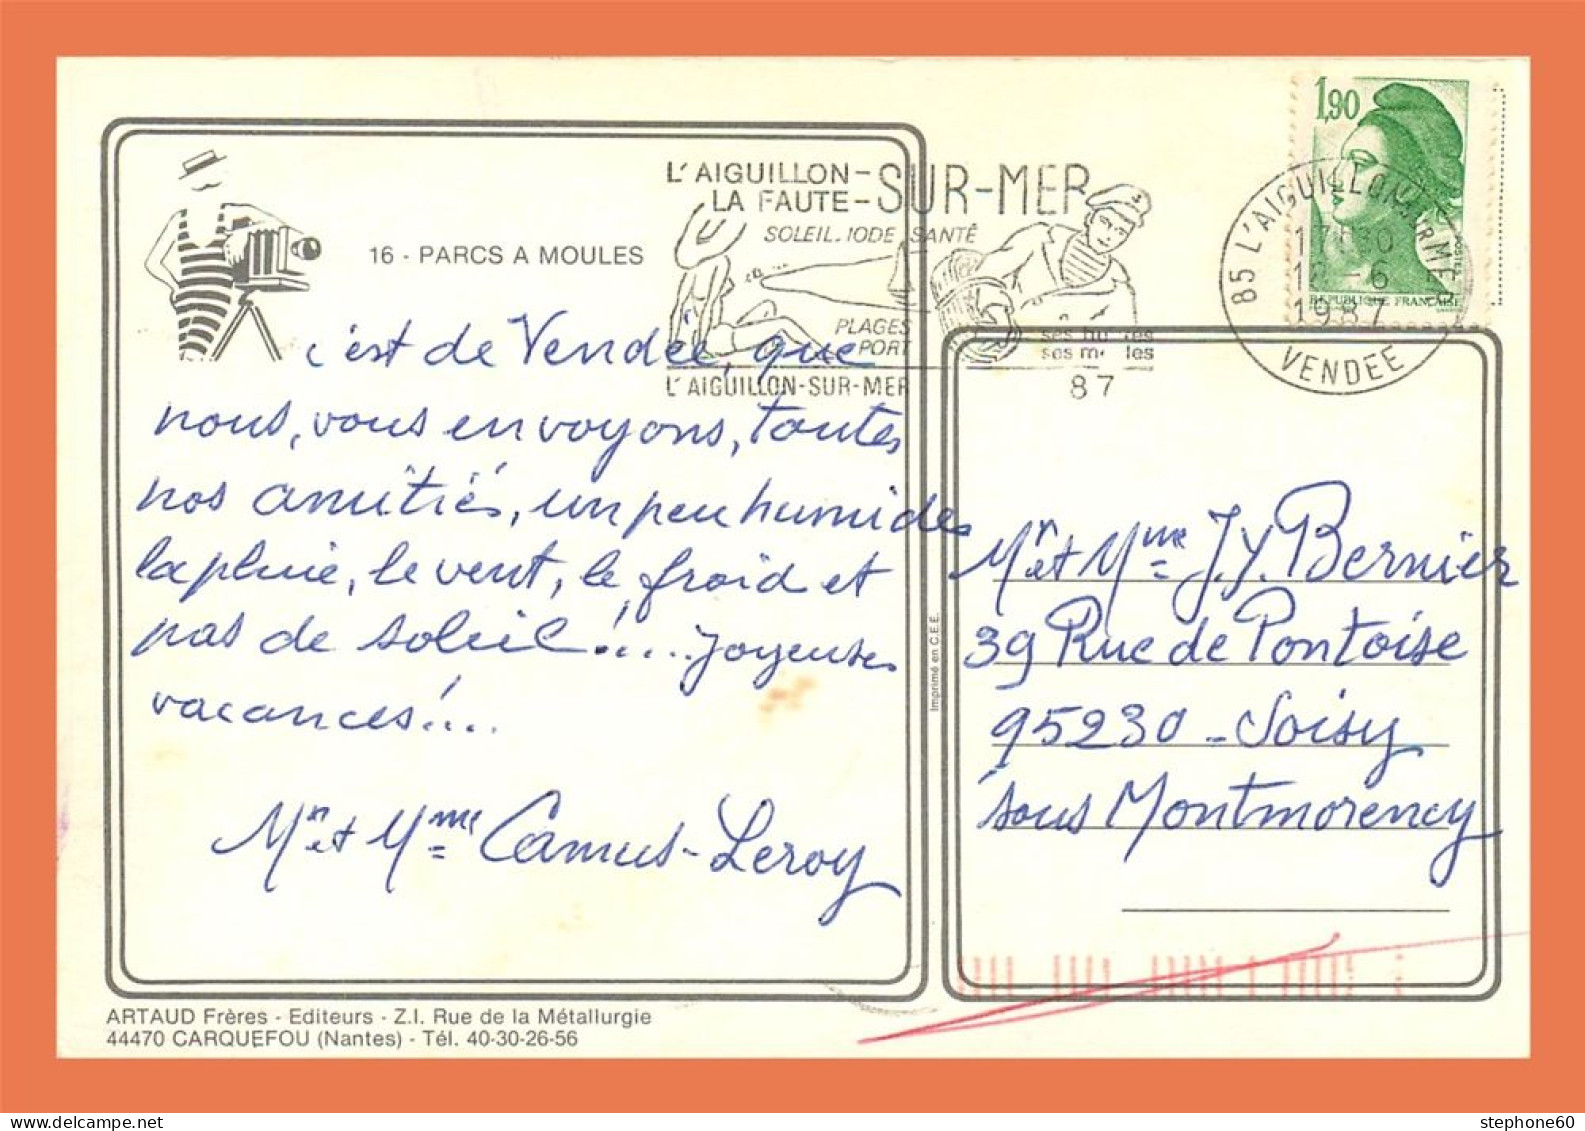 16 - PARCS A MOULES
L'AIGUILLON-
LA FAUTE-SUR-MER
SOLEIL.IODE SANTÉ
PLAGES
PORT
ses
ses
L'AIGUILLON-SUR-MER
87
1,90
REPUBLIQUE FRANÇAISE
85 L'AIGUILLON S/MER
17H30
6
1987
VENDÉE
c'est de Vendée, que
nous, vous envoyons, toutes
nos amitiés, un peu humides
la pluie, le vent, le froid et
pas de soleil !.... joyeuses
vacances !...
Mr et Mme Camus-Leroy
Imprimé en C.E.E.
Mr et Mme J.Y. Bernier
39 Rue de Pontoise
95230 - Soisy
sous Montmorency
ARTAUD Frères - Editeurs - Z.I. Rue de la Métallurgie
44470 CARQUEFOU (Nantes) - Tél. 40-30-26-56
stephone60